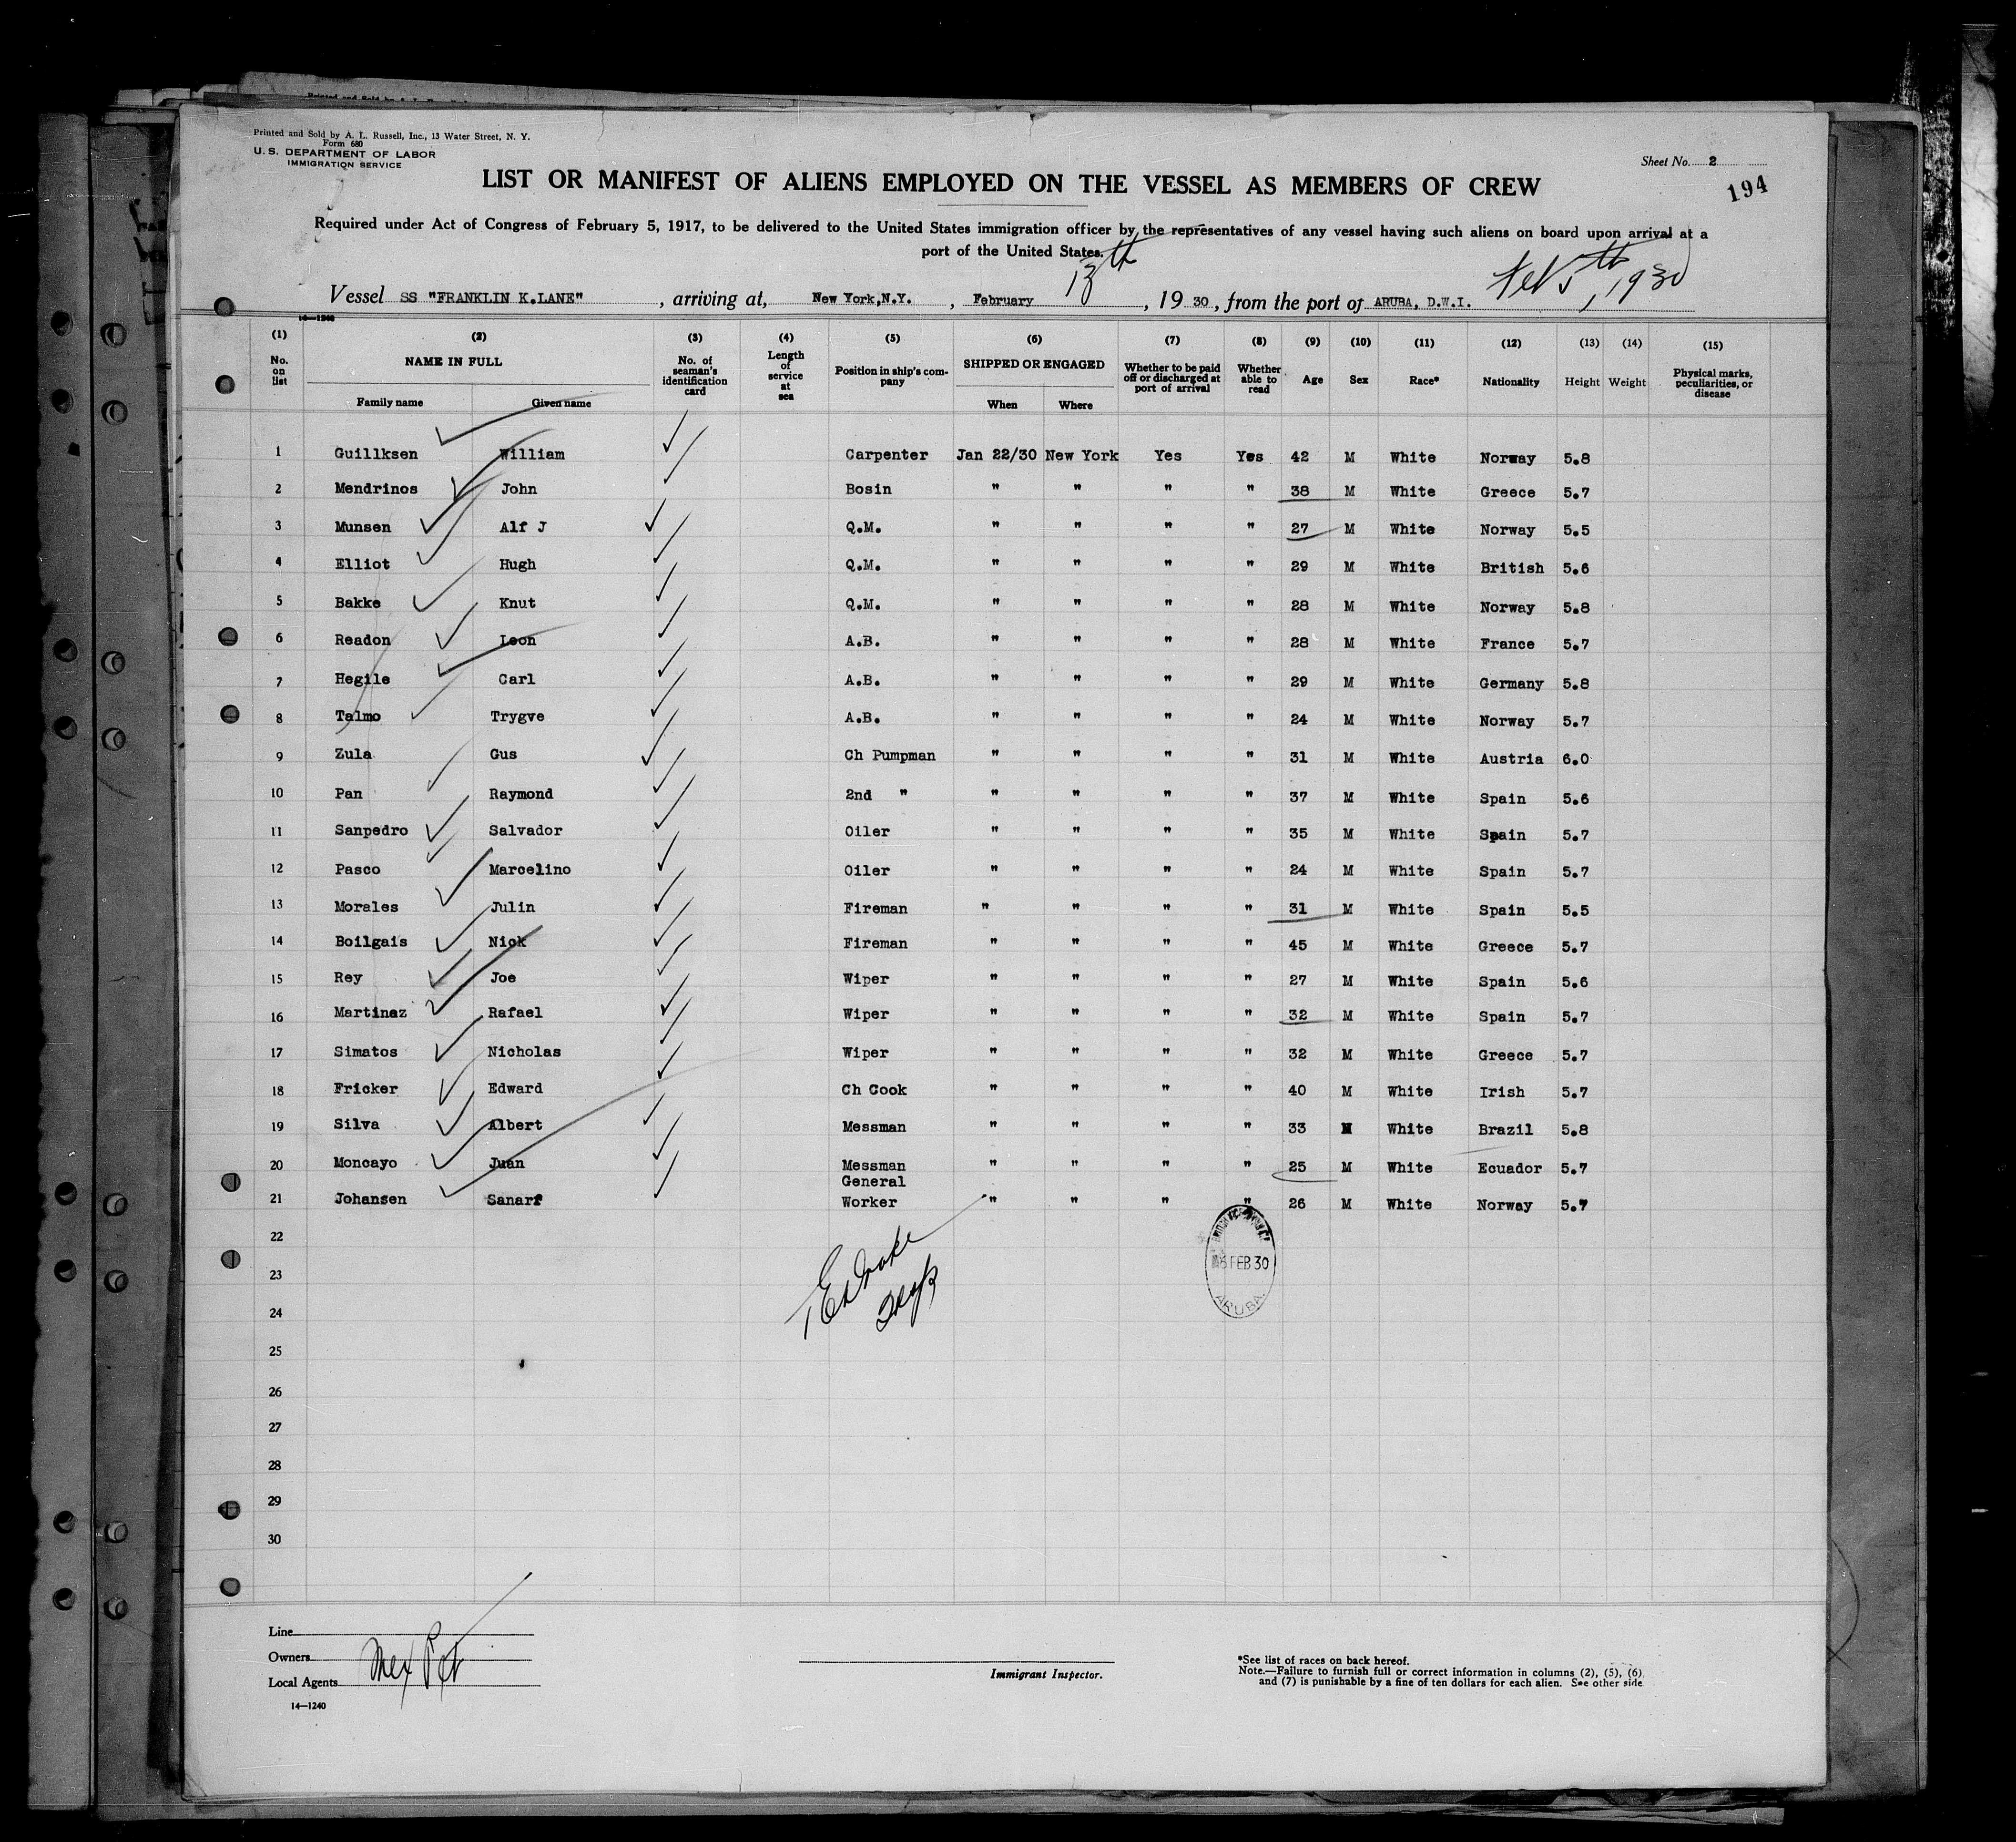 Printed and Sold by A. L. Russell, Inc., 13 Water Street, N. Y.
Form 680
U. S. DEPARTMENT OF LABOR
IMMIGRATION SERVICE
Sheet No. 2
194
LIST OR MANIFEST OF ALIENS EMPLOYED ON THE VESSEL AS MEMBERS OF CREW
Required under Act of Congress of February 5, 1917, to be delivered to the United States immigration officer by the representatives of any vessel having such aliens on board upon arrival at a
port of the United States.
Vessel SS "FRANKLIN K.LANE", arriving at, New York,N.Y., February 13th, 19 30, from the port of ARUBA, D.W.I. Feb 5th, 1930
14—1240
(1) (2) (3) (4) (5) (6) (7) (8) (9) (10) (11) (12) (13) (14) (15)
No. on list NAME IN FULL Family name Given name No. of seaman's identification card Length of service at sea Position in ship's company SHIPPED OR ENGAGED When Where Whether to be paid off or discharged at port of arrival Whether able to read Age Sex Race* Nationality Height Weight Physical marks, peculiarities, or disease
1 Guillksen William Carpenter Jan 22/30 New York Yes Yes 42 M White Norway 5.8
2 Mendrinos John Bosin " " " " 38 M White Greece 5.7
3 Munsen Alf J Q.M. " " " " 27 M White Norway 5.5
4 Elliot Hugh Q.M. " " " " 29 M White British 5.6
5 Bakke Knut Q.M. " " " " 28 M White Norway 5.8
6 Readon Leon A.B. " " " " 28 M White France 5.7
7 Hegile Carl A.B. " " " " 29 M White Germany 5.8
8 Talmo Trygve A.B. " " " " 24 M White Norway 5.7
9 Zula Gus Ch Pumpman " " " " 31 M White Austria 6.0
10 Pan Raymond 2nd " " " " " 37 M White Spain 5.6
11 Sanpedro Salvador Oiler " " " " 35 M White Spain 5.7
12 Pasco Marcelino Oiler " " " " 24 M White Spain 5.7
13 Morales Julin Fireman " " " " 31 M White Spain 5.5
14 Boilgais Nick Fireman " " " " 45 M White Greece 5.7
15 Rey Joe Wiper " " " " 27 M White Spain 5.6
16 Martinaz Rafael Wiper " " " " 32 M White Spain 5.7
17 Simatos Nicholas Wiper " " " " 32 M White Greece 5.7
18 Fricker Edward Ch Cook " " " " 40 M White Irish 5.7
19 Silva Albert Messman " " " " 33 M White Brazil 5.8
20 Moncayo Juan Messman " " " " 25 M White Ecuador 5.7
21 Johansen Sanarf General Worker " " " " 26 M White Norway 5.7
22
23
24
25
26
27
28
29
30
FEB 30
ARUBA
Line
Owners
Local Agents Mex Pet
14—1240
Immigrant Inspector.
*See list of races on back hereof.
Note.—Failure to furnish full or correct information in columns (2), (5), (6)
and (7) is punishable by a fine of ten dollars for each alien. See other side